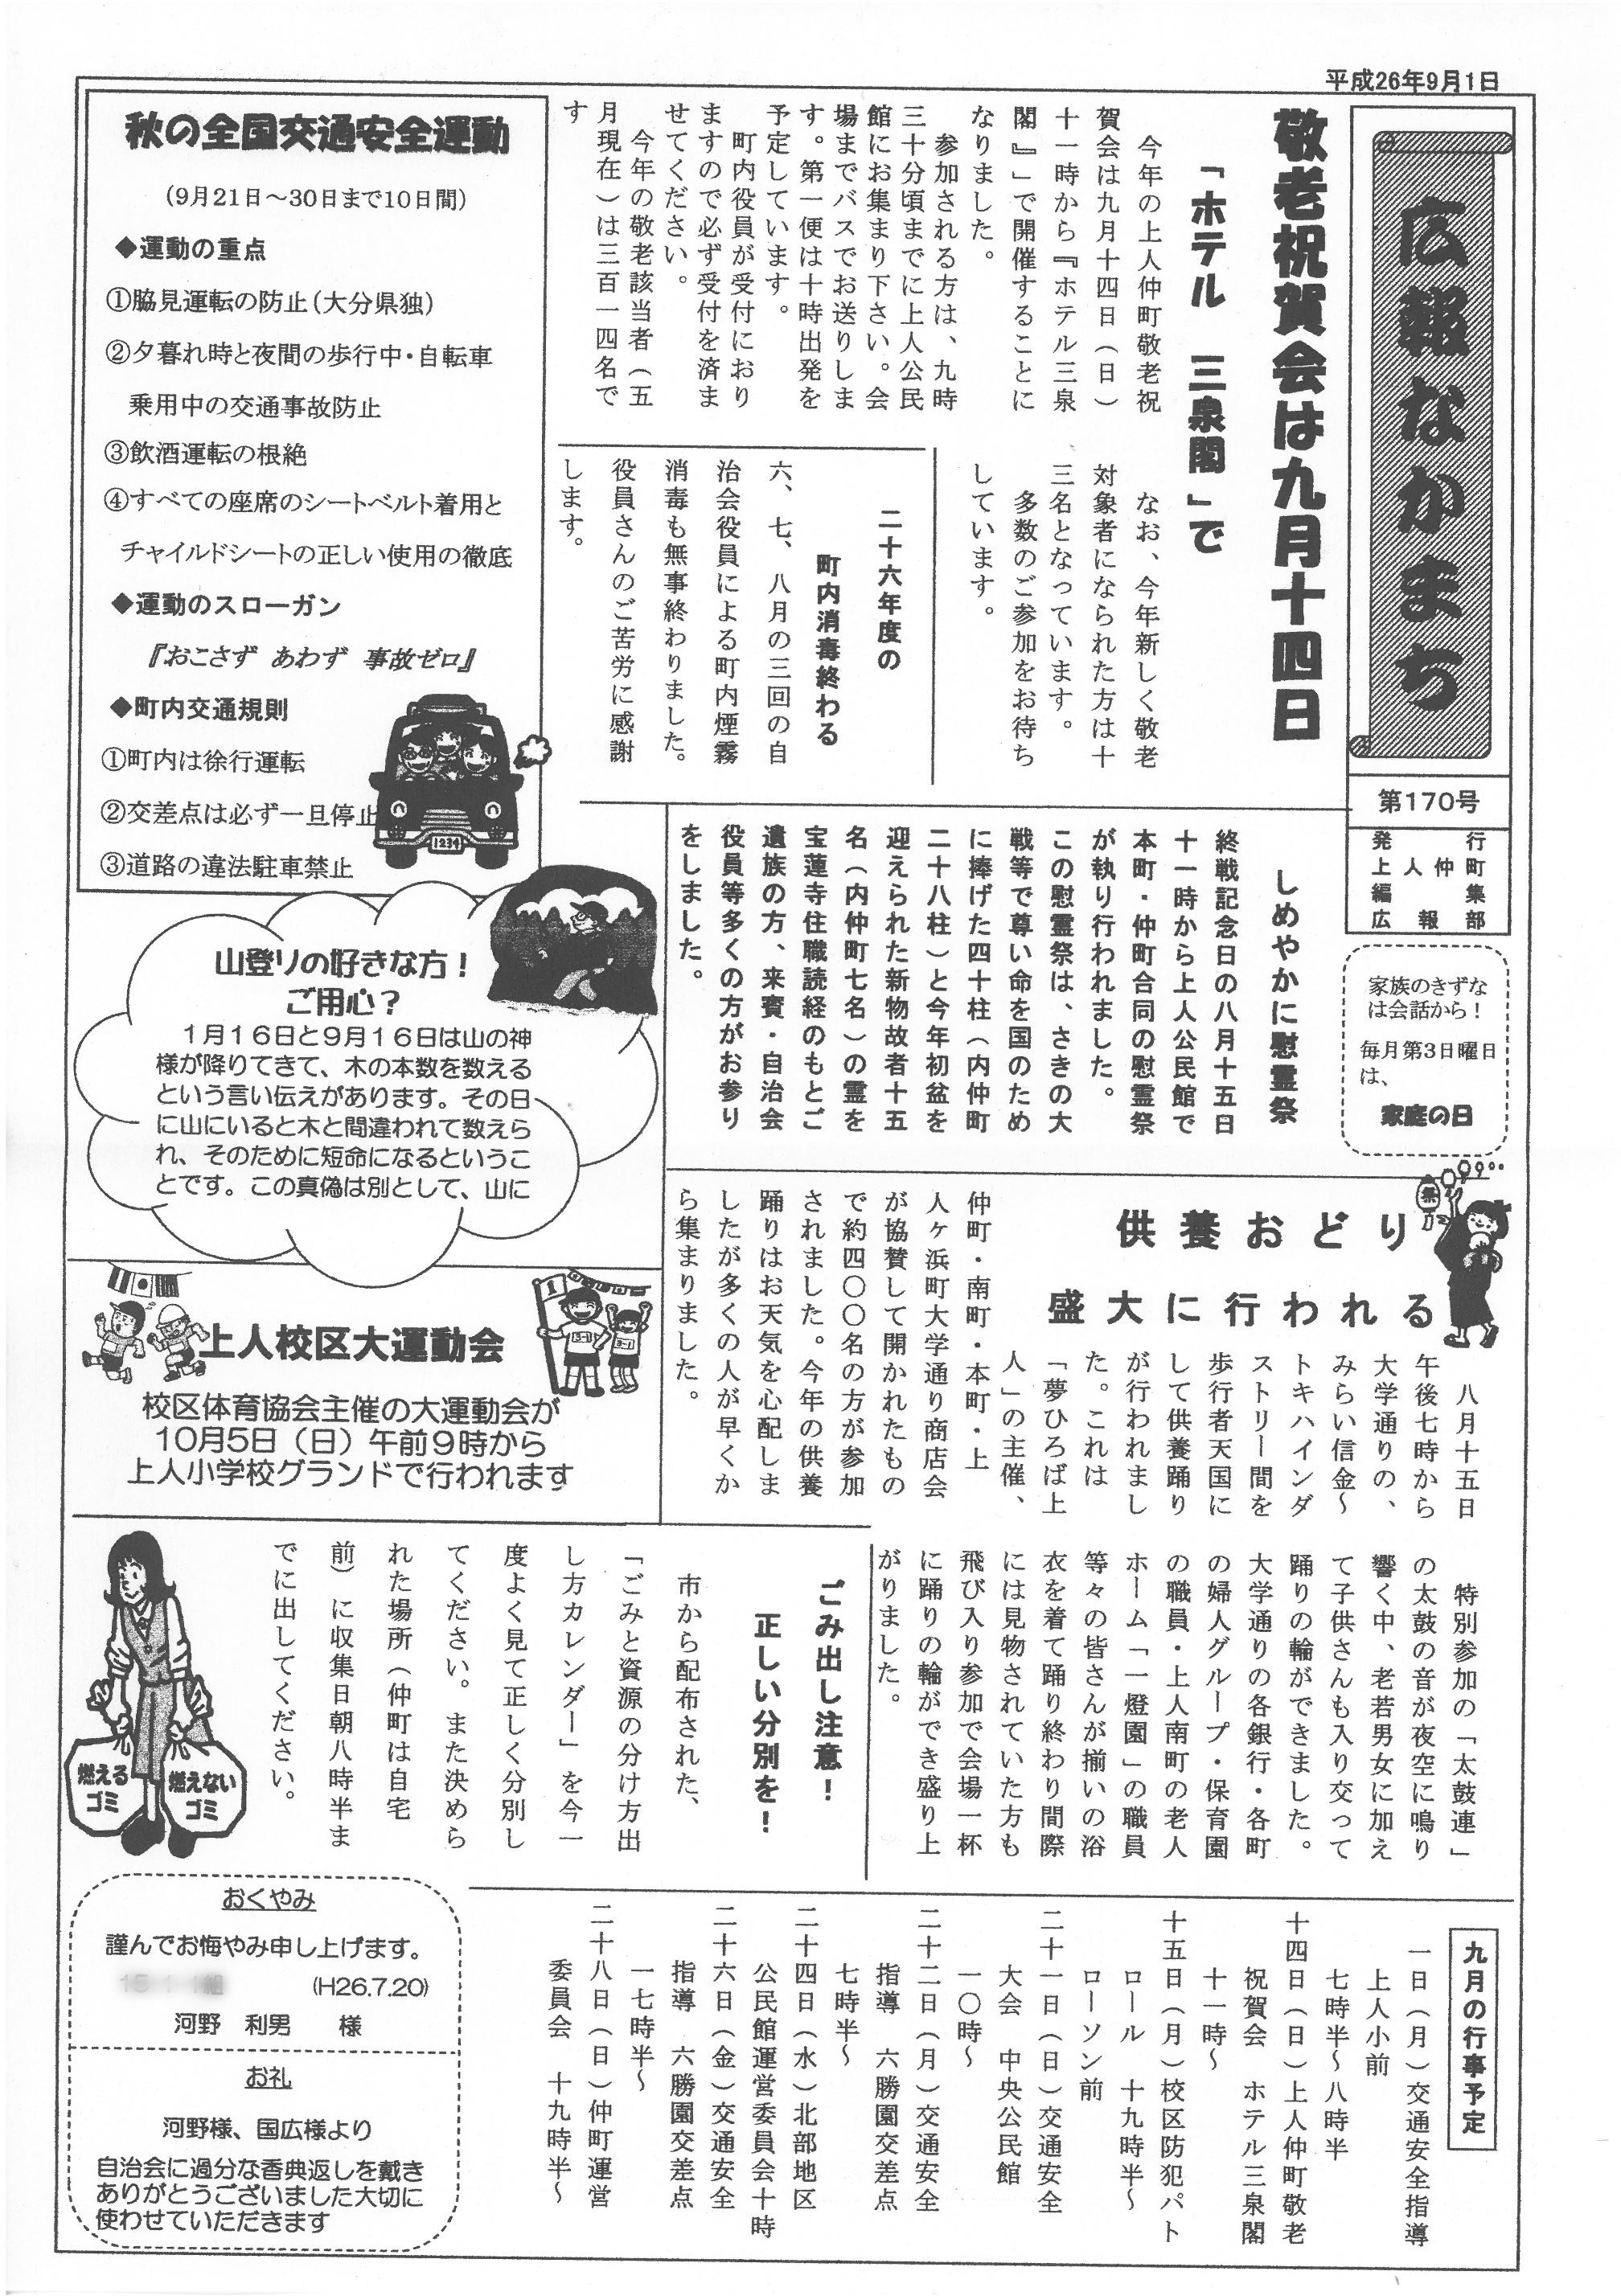 平成26年9月1日
広報なかまち
第170号
発行
上人仲町
編集
広報部
家族のきずな
は会話から！
毎月第3日曜日
は、
家庭の日
敬老祝賀会は九月十四日
「ホテル　三泉閣」で
今年の上人仲町敬老祝
賀会は九月十四日（日）
十一時から『ホテル三泉
閣』」で開催することに
なりました。
参加される方は、九時
三十分頃までに上人公民
館にお集まり下さい。会
場までバスでお送りしま
す。第一便は十時出発を
予定しています。
町内役員が受付におり
ますので必ず受付を済ま
せてください。
今年の敬老該当者（五
月現在）は三百一四名で
す
なお、今年新しく敬老
対象者になられた方は十
三名となっています。
多数のご参加をお待ち
しています。
二十六年度の
町内消毒終わる
六、七、八月の三回の自
治会役員による町内煙霧
消毒も無事終わりました。
役員さんのご苦労に感謝
します。
秋の全国交通安全運動
（9月21日～30日まで10日間）
◆運動の重点
①脇見運転の防止（大分県独）
②夕暮れ時と夜間の歩行中・自転車
乗用中の交通事故防止
③飲酒運転の根絶
④すべての座席のシートベルト着用と
チャイルドシートの正しい使用の徹底
◆運動のスローガン
『おこさず　あわず　事故ゼロ』
◆町内交通規則
①町内は徐行運転
②交差点は必ず一旦停止
③道路の違法駐車禁止
1234
しめやかに慰霊祭
終戦記念日の八月十五日
十一時から上人公民館で
本町・仲町合同の慰霊祭
が執り行われました。
この慰霊祭は、さきの大
戦等で尊い命を国のため
に捧げた四十柱（内仲町
二十八柱）と今年初盆を
迎えられた新物故者十五
名（内仲町七名）の霊を
宝蓮寺住職読経のもとご
遺族の方、来賓・自治会
役員等多くの方がお参り
をしました。
山登りの好きな方！
ご用心？
１月１６日と９月１６日は山の神
様が降りてきて、木の本数を数える
という言い伝えがあります。その日
に山にいると木と間違われて数えら
れ、そのために短命になるというこ
とです。この真偽は別として、山に
祭
供養おどり
盛大に行われる
八月十五日
午後七時から
大学通りの、
みらい信金～
トキハインダ
ストリー間を
歩行者天国に
して供養踊り
が行われまし
た。これは
「夢ひろば上
人」の主催、
仲町・南町・本町・上
人ヶ浜町大学通り商店会
が協賛して開かれたもの
で約四〇〇名の方が参加
されました。今年の供養
踊りはお天気を心配しま
したが多くの人が早くか
ら集まりました。
特別参加の「太鼓連」
の太鼓の音が夜空に鳴り
響く中、老若男女に加え
て子供さんも入り交って
踊りの輪ができました。
大学通りの各銀行・各町
の婦人グループ・保育園
の職員・上人南町の老人
ホーム「一燈園」の職員
等々の皆さんが揃いの浴
衣を着て踊り終わり間際
には見物されていた方も
飛び入り参加で会場一杯
に踊りの輪ができ盛り上
がりました。
1
上人校区大運動会
校区体育協会主催の大運動会が
10月5日（日）午前９時から
上人小学校グランドで行われます
ごみ出し注意！
正しい分別を！
市から配布された、
「ごみと資源の分け方出
し方カレンダー」を今一
度よく見て正しく分別し
てください。また決めら
れた場所（仲町は自宅
前）に収集日朝八時半ま
でに出してください。
燃える
ゴミ
燃えない
ゴミ
九月の行事予定
一日（月）交通安全指導
上人小前
七時半～八時半
十四日（日）上人仲町敬老
祝賀会　ホテル三泉閣
十一時～
十五日（月）校区防犯パト
ロール　十九時半～
ローソン前
二十一日（日）交通安全
大会　中央公民館
一〇時～
二十二日（月）交通安全
指導　六勝園交差点
七時半～
二十四日（水）北部地区
公民館運営委員会十時
二十六日（金）交通安全
指導　六勝園交差点
一七時半～
二十八日（日）仲町運営
委員会　十九時半～
おくやみ
謹んでお悔やみ申し上げます。
（H26.7.20）
河野　利男　　様
お礼
河野様、国広様より
自治会に過分な香典返しを戴き
ありがとうございました大切に
使わせていただきます